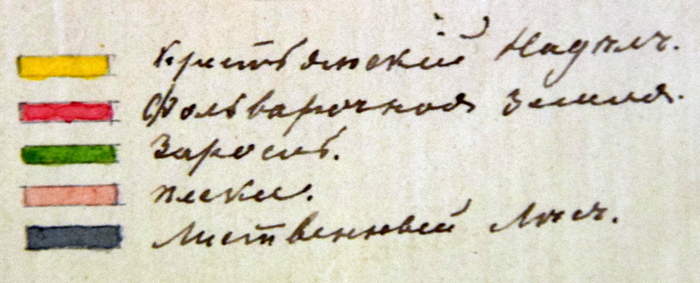 Крестьянскій Надѣлъ.
Фольварочная Земля.
Заросль.
пески.
Лиственный Лѣсъ.